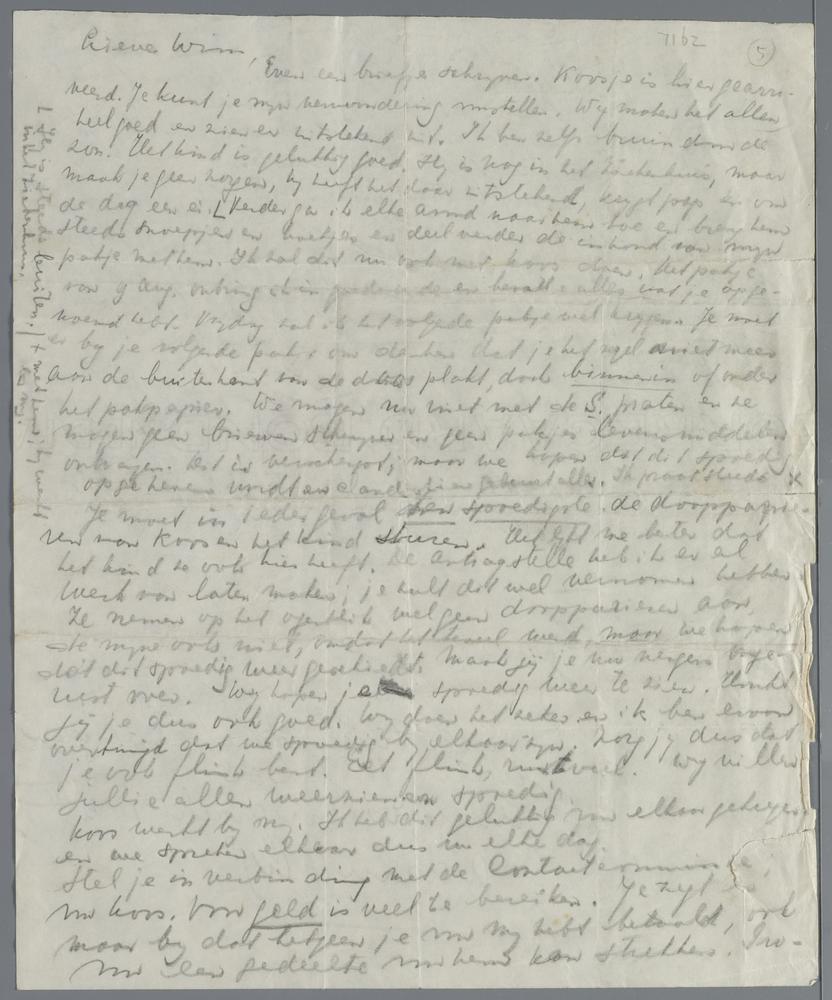 7162
5
Lieve Wim,
Even een briefje schrijven. Koosje is hier gearri-
veerd. Je kunt je mijn verwondering voorstellen. Wij maken het allen
heel goed en zien er uitstekend uit. Ik ben zelfs bruin door de
zon. Het kind is gelukkig goed. Hij is nog in het Ziekenhuis, maar
maak je geen zorgen, hij heeft het daar uitstekend, krijgt pap en om
de dag een ei. Verder ga ik elke avond naar hem toe en breng hem
steeds snoepjes en koekjes en deel verder de inhoud van mijn
pakje met hem. Ik zal dat nu ook met Koos doen. Het pakje
van 9 Aug. ontving ik in goede orde en bevatte alles wat je opge-
noemd hebt. Vrijdag zal ik het volgende pakje wel krijgen. Je moet
er bij je volgende pakje om denken dat je het zegel niet meer
aan de buitenkant van de doos plakt, doch binnenin of onder
het pakpapier. We mogen nu niet met de S. praten en ze
mogen geen brieven schrijven en geen pakjes levensmiddelen
ontvangen. maar we hopen dat dit spoedig
opgeheven wordt en Ik praat steeds x
Je moet in ieder geval ten spoedigste de dooppapie-
ren van Koos en het kind sturen. Het lijkt me beter dat
het kind ze ook hier heeft. De Antragstelle heb ik er al
werk van laten maken; je zult dit wel vernomen hebben.
Ze nemen op het ogenblik wel geen dooppapieren aan,
de mijne ook niet, omdat het teveel werd, maar we hopen
dat dit spoedig weer geschiedt. Maak jij je nu nergens onge-
rust over. Wij hopen je spoedig weer te zien. Houdt
jij je dus ook goed. Wij doen het zeker en ik ben ervan
overtuigd dat we spoedig bij elkaar zijn. Zorg jij dus dat
je ook flink bent. Eet flink, rust veel. Wij willen
jullie allen weerzien en spoedig.
Koos werkt bij mij. Ik heb dit gelukkig voor elkaar gekregen
en we spreken elkaar dus nu elke dag.
Stel je in verbinding met de Contactcommissie;
nu Koos. Voor geld is veel te bereiken. Je zegt
maar bij dat hetgeen je voor mij hebt betaald, ook
voor een gedeelte voor hem kan strekken. In-
L Hij is steeds buiten;
in het Ziekenhuis.
x met hem; hij werkt
bij mij.